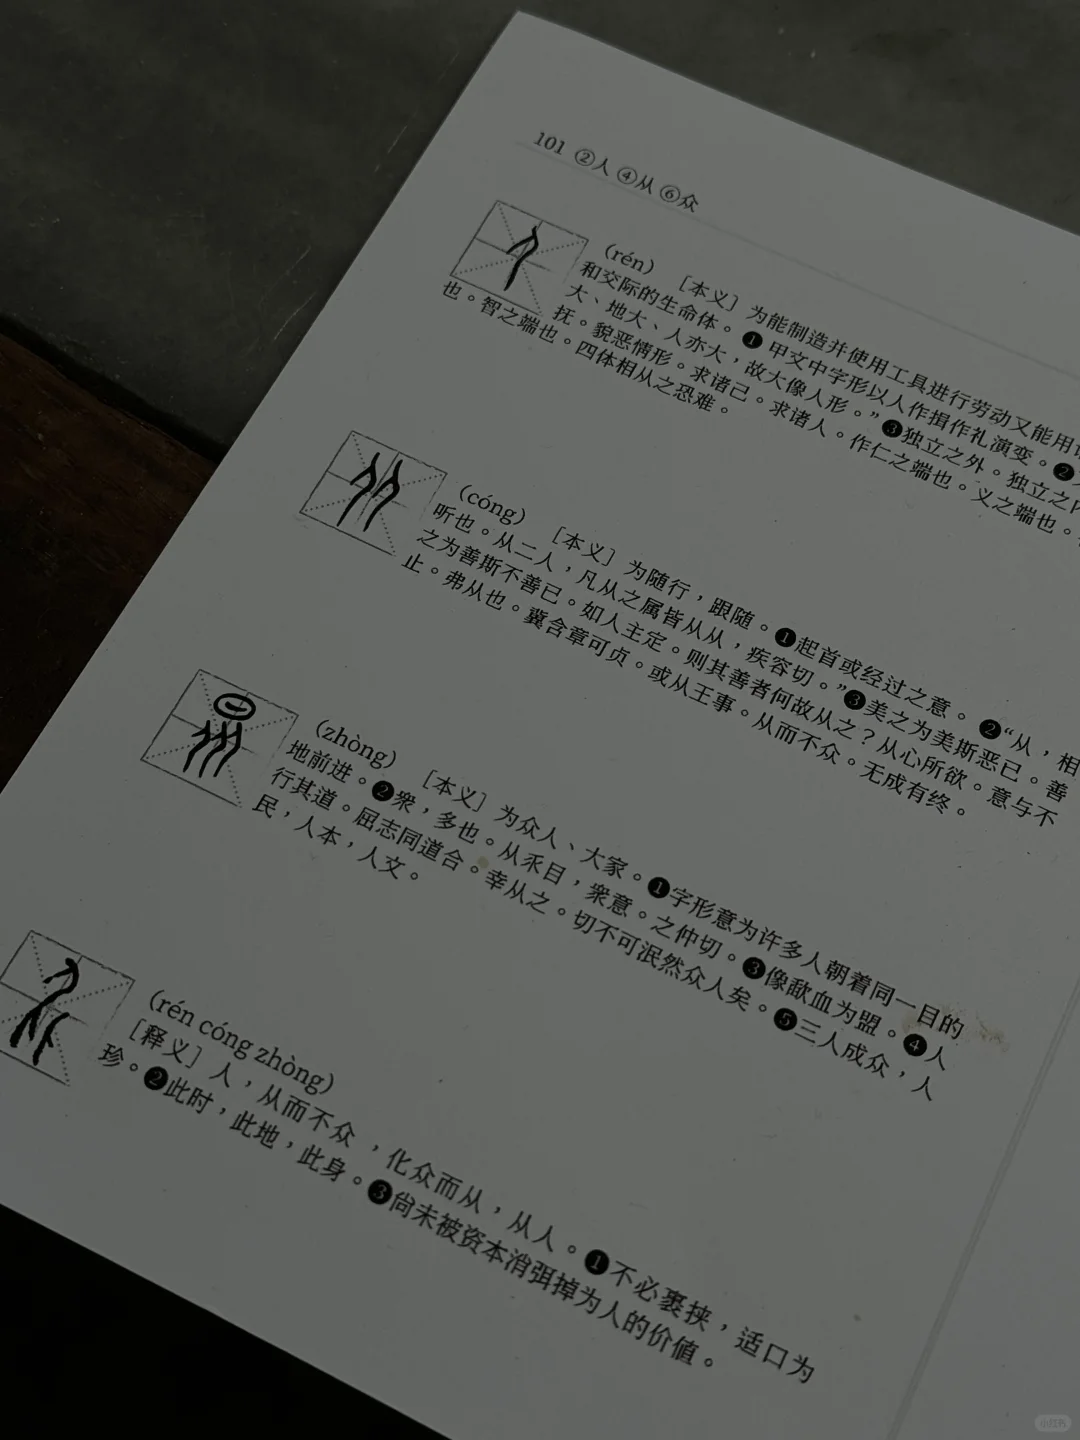 101 ②人 ④从 ⑥众
（rén） ［本义］为能制造并使用工具进行劳动又能用
和交际的生命体。❶甲文中字形以人作揖作礼演变。❷
大、地大、人亦大，故大像人形。”❸独立之外。独立之内
抚。貌恶情形。求诸己。求诸人。作仁之端也。义之端也。
也。智之端也。四体相从之恐难。
（cóng） ［本义］为随行，跟随。❶起首或经过之意。❷“从，相
听也。从二人，凡从之属皆从从，疾容切。”❸美之为美斯恶已。善
之为善斯不善已。如人主定。则其善者何故从之？从心所欲。意与不
止。弗从也。冀含章可贞。或从王事。从而不众。无成有终。
（zhòng） ［本义］为众人、大家。❶字形意为许多人朝着同一目的
地前进。❷衆，多也。从乑目，衆意。之仲切。❸像歃血为盟。❹人
行其道。屈志同道合。幸从之。切不可泯然众人矣。❺三人成众，人
民，人本，人文。
（rén cóng zhòng）
［释义］人，从而不众，化众而从，从人。❶不必裹挟，适口为
珍。❷此时，此地，此身。❸尙未被资本消弭掉为人的价值。
小红书